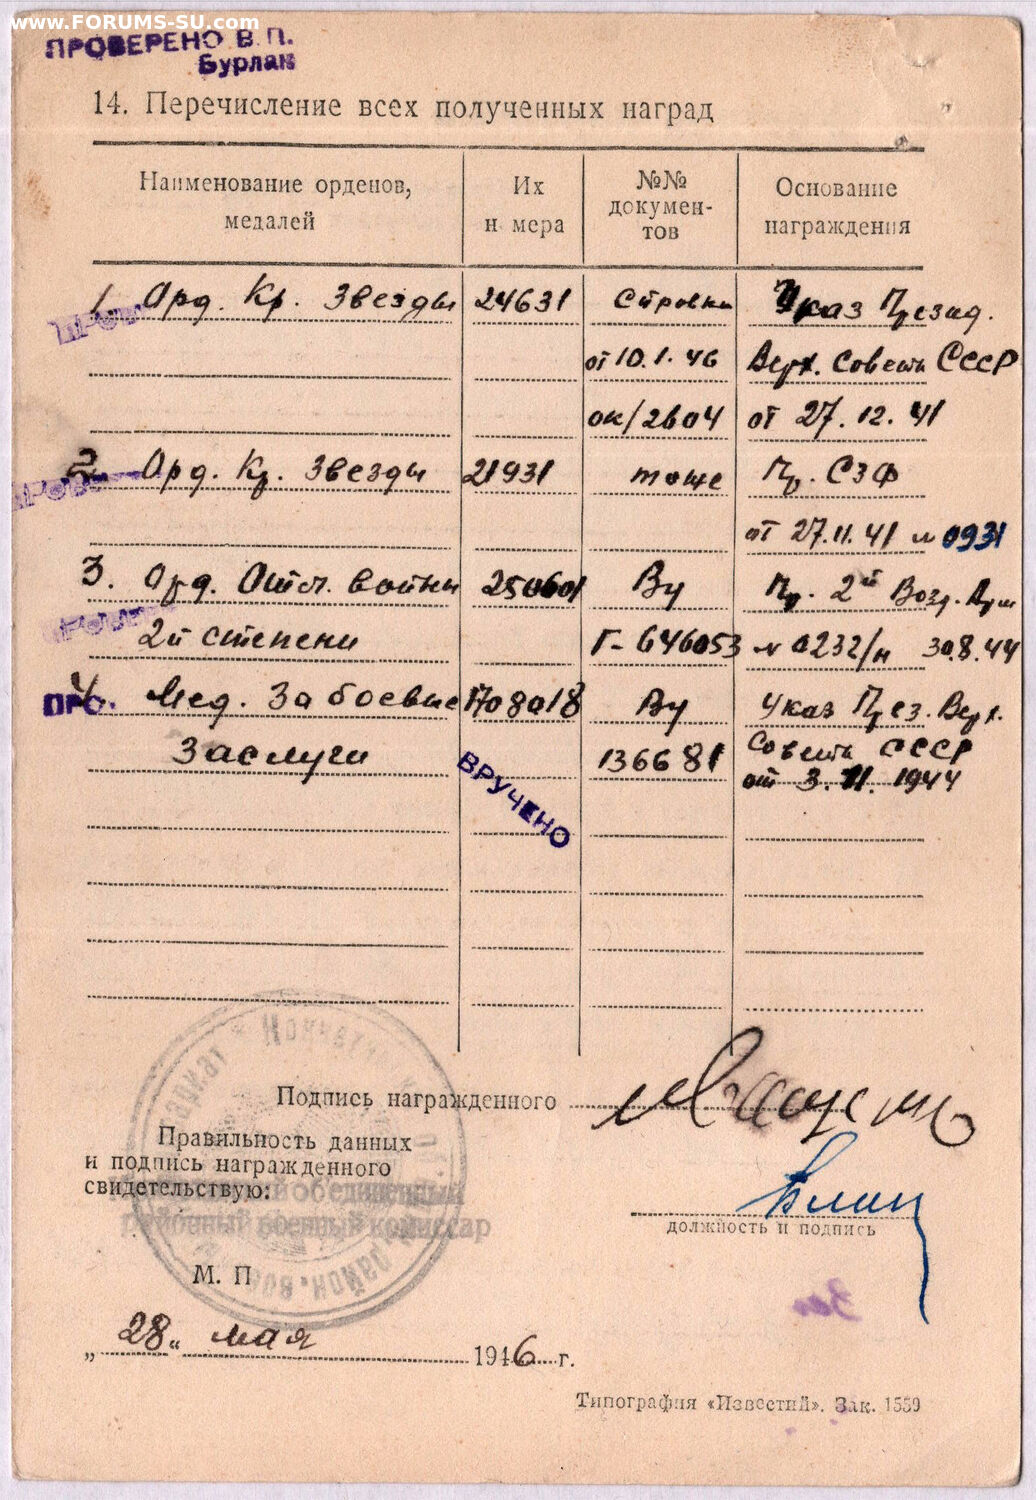 www.FORUMS-SU.com
ПРОВЕРЕНО В.П.
Бурлак
14. Перечисление всех полученных наград
Наименование орденов, медалей
Их н мера
№№ докумен-тов
Основание награждения
1. Орд. Кр. Звезды 24631 Указ Презид.
от 10.1.46 Верх. Совета СССР
ок/2804 от 27.12.41
2. Орд. Кр. Звезды 21931 тоже Пр. СЗФ
от 27.11.41 № 0931
3. Орд. Отеч. войны 250601 Ву Пр. 2й Возд. Арм
2й степени Г-646053 № 0232/н 30.8.44
4. Мед. За боевые 1708018 Ву Указ През. Верх.
Заслуги 136681 Совета СССР
от 3.11.1944
ВРУЧЕНО
Подпись награжденного
Правильность данных
и подпись награжденного
свидетельствую:
объединенный
районный военный комиссар
должность и подпись
М. П
„28“ мая 1946 г.
Типография «Известий». Зак. 1559